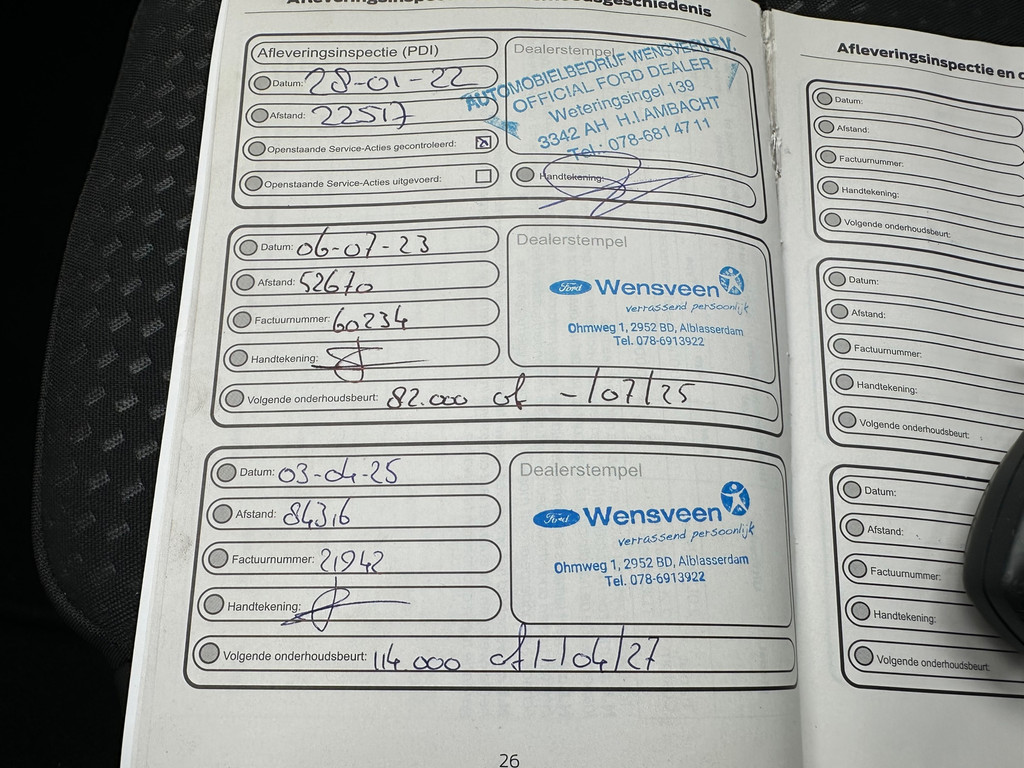 Afleveringsinspectie (PDI)
Datum: 28-01-22
Afstand: 22517
Openstaande Service-Acties gecontroleerd:
Openstaande Service-Acties uitgevoerd:
Dealerstempel
AUTOMOBIELBEDRIJF WENSVEEN B.V.
OFFICIAL FORD DEALER
Weteringsingel 139
3342 AH H.I.AMBACHT
Tel.: 078-681 47 11
Handtekening:
Datum: 06-07-23
Afstand: 52670
Factuurnummer: 60234
Handtekening:
Volgende onderhoudsbeurt: 82.000 of -/07/25
Dealerstempel
Ford Wensveen
verrassend persoonlijk
Ohmweg 1, 2952 BD, Alblasserdam
Tel. 078-6913922
Datum: 03-04-25
Afstand: 84316
Factuurnummer: 21942
Handtekening:
Volgende onderhoudsbeurt: 114.000 of 1-/04/27
Dealerstempel
Ford Wensveen
verrassend persoonlijk
Ohmweg 1, 2952 BD, Alblasserdam
Tel. 078-6913922
26
Afleveringsinspectie en
Datum:
Afstand:
Factuurnummer:
Handtekening:
Volgende onderhoudsbeurt:
Datum:
Afstand:
Factuurnummer:
Handtekening:
Volgende onderhoudsbeurt:
Datum:
Afstand:
Factuurnummer:
Handtekening:
Volgende onderhoudsbeurt: